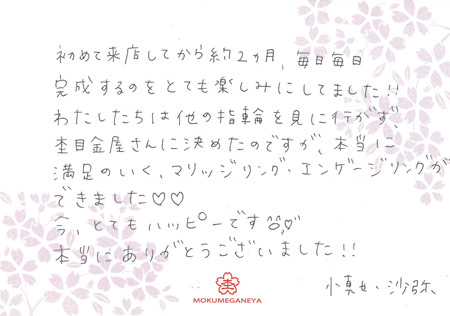 初めて来店してから約2ヵ月、毎日毎日
完成するのをとても楽しみにしてました!!
わたしたちは他の指輪を見に行かず、
杢目金屋さんに決めたのですが、本当に
満足のいく、マリッジリング・エンゲージリングが
できました♡♡
今、とてもハッピーです
本当にありがとうございました!!
MOKUMEGANEYA
沙弥